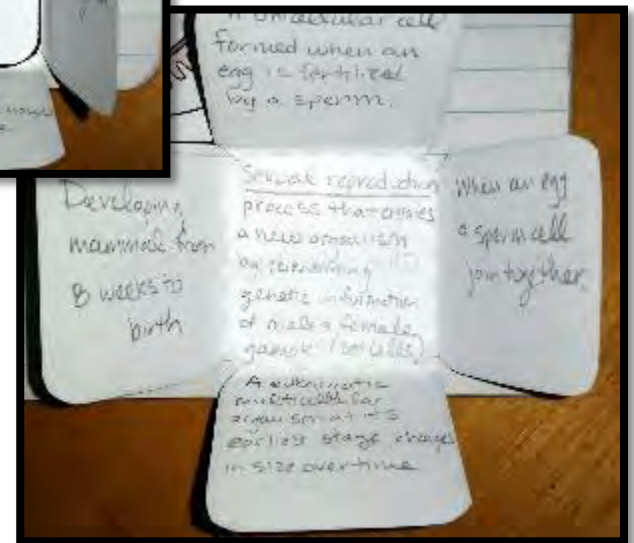 A unicellular cell
formed when an
egg is fertilized
by a sperm.
Developing
mammal from
8 weeks to
birth
Sexual reproduction
process that creates
a new organism
by combining
genetic information
of male & female
gametes (sex cells)
When an egg
a sperm cell
join together.
A eukaryotic
multicellular
organism at its
earliest stage changes
in size overtime